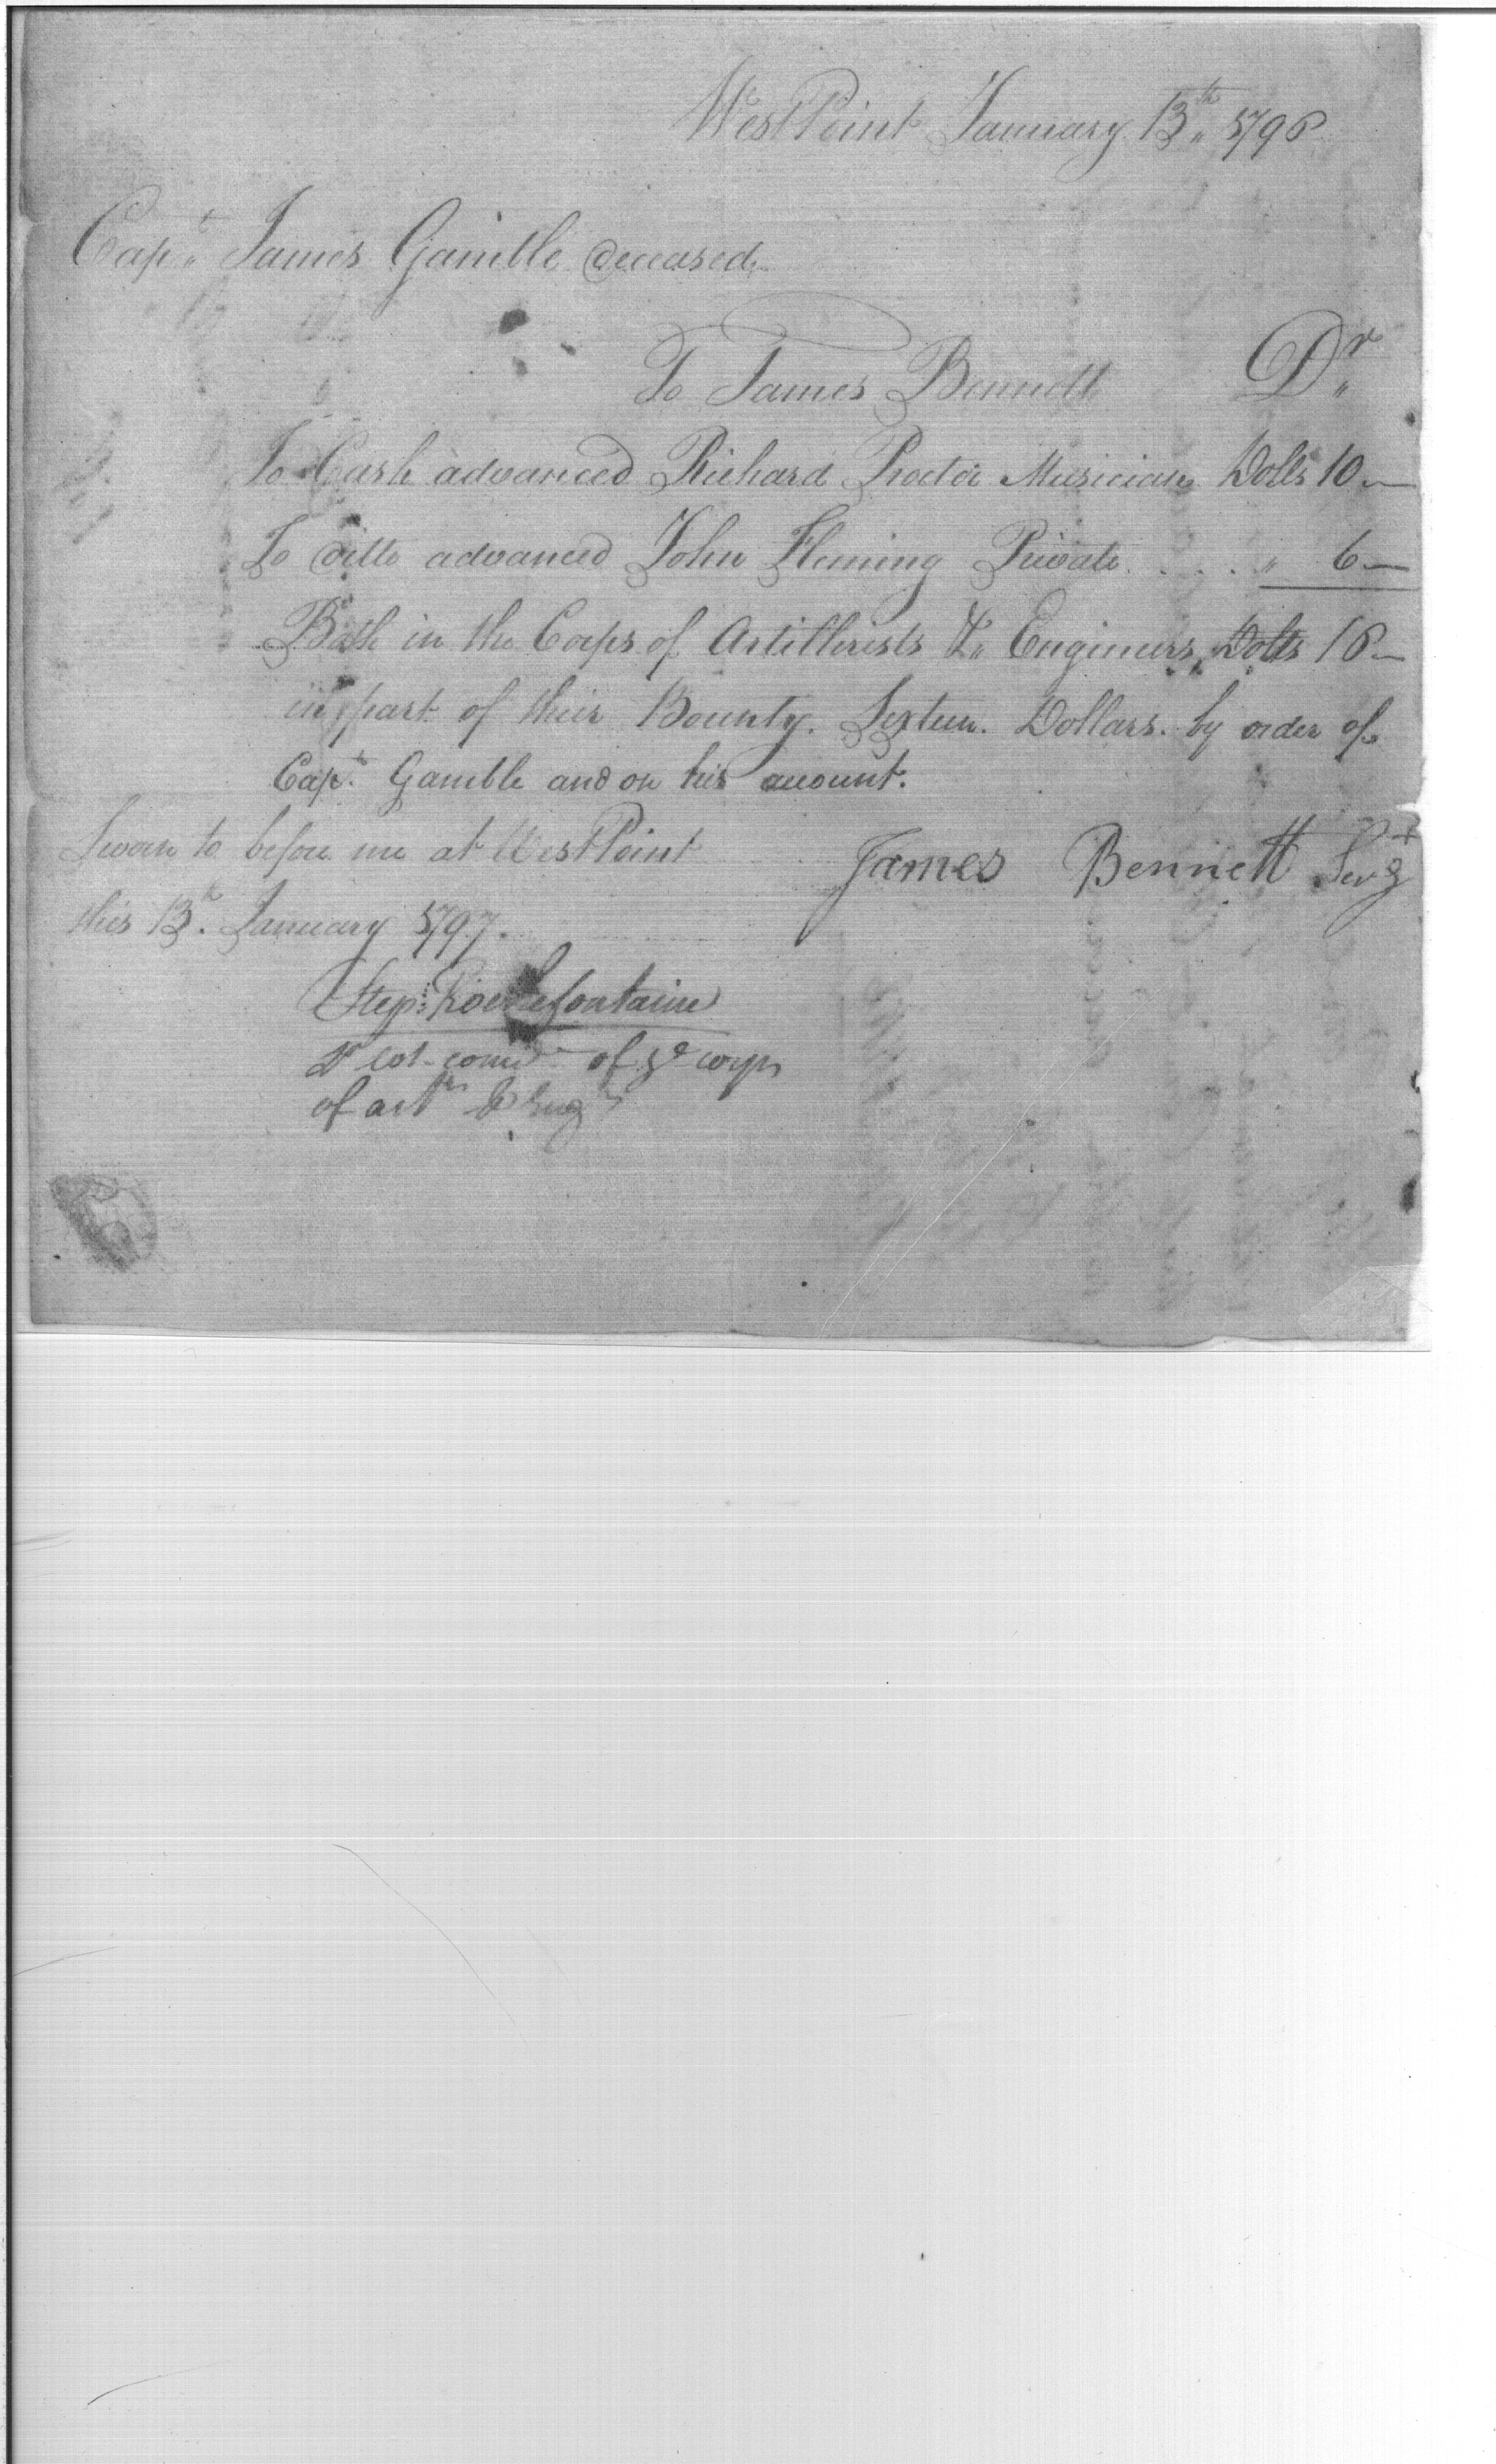 West Point January 13th 1796
Capt James Gamble deceased
To James Bennett Dr
To Cash advanced Richard Proctor Musician Dolls 10 —
To ditto advanced John Fleming Private . . . . " 6 —
Both in the Corps of Artillerists & Engineers, Dolls 16 —
in part of their Bounty. Sixteen. Dollars. by order of
Capt. Gamble and on his account.
James Bennett Sergt
Sworn to before me at West Point
this 13th. January 1797.
Step: Rochefontaine
Lt Col. comdt of ye corps
of artts & Engrs